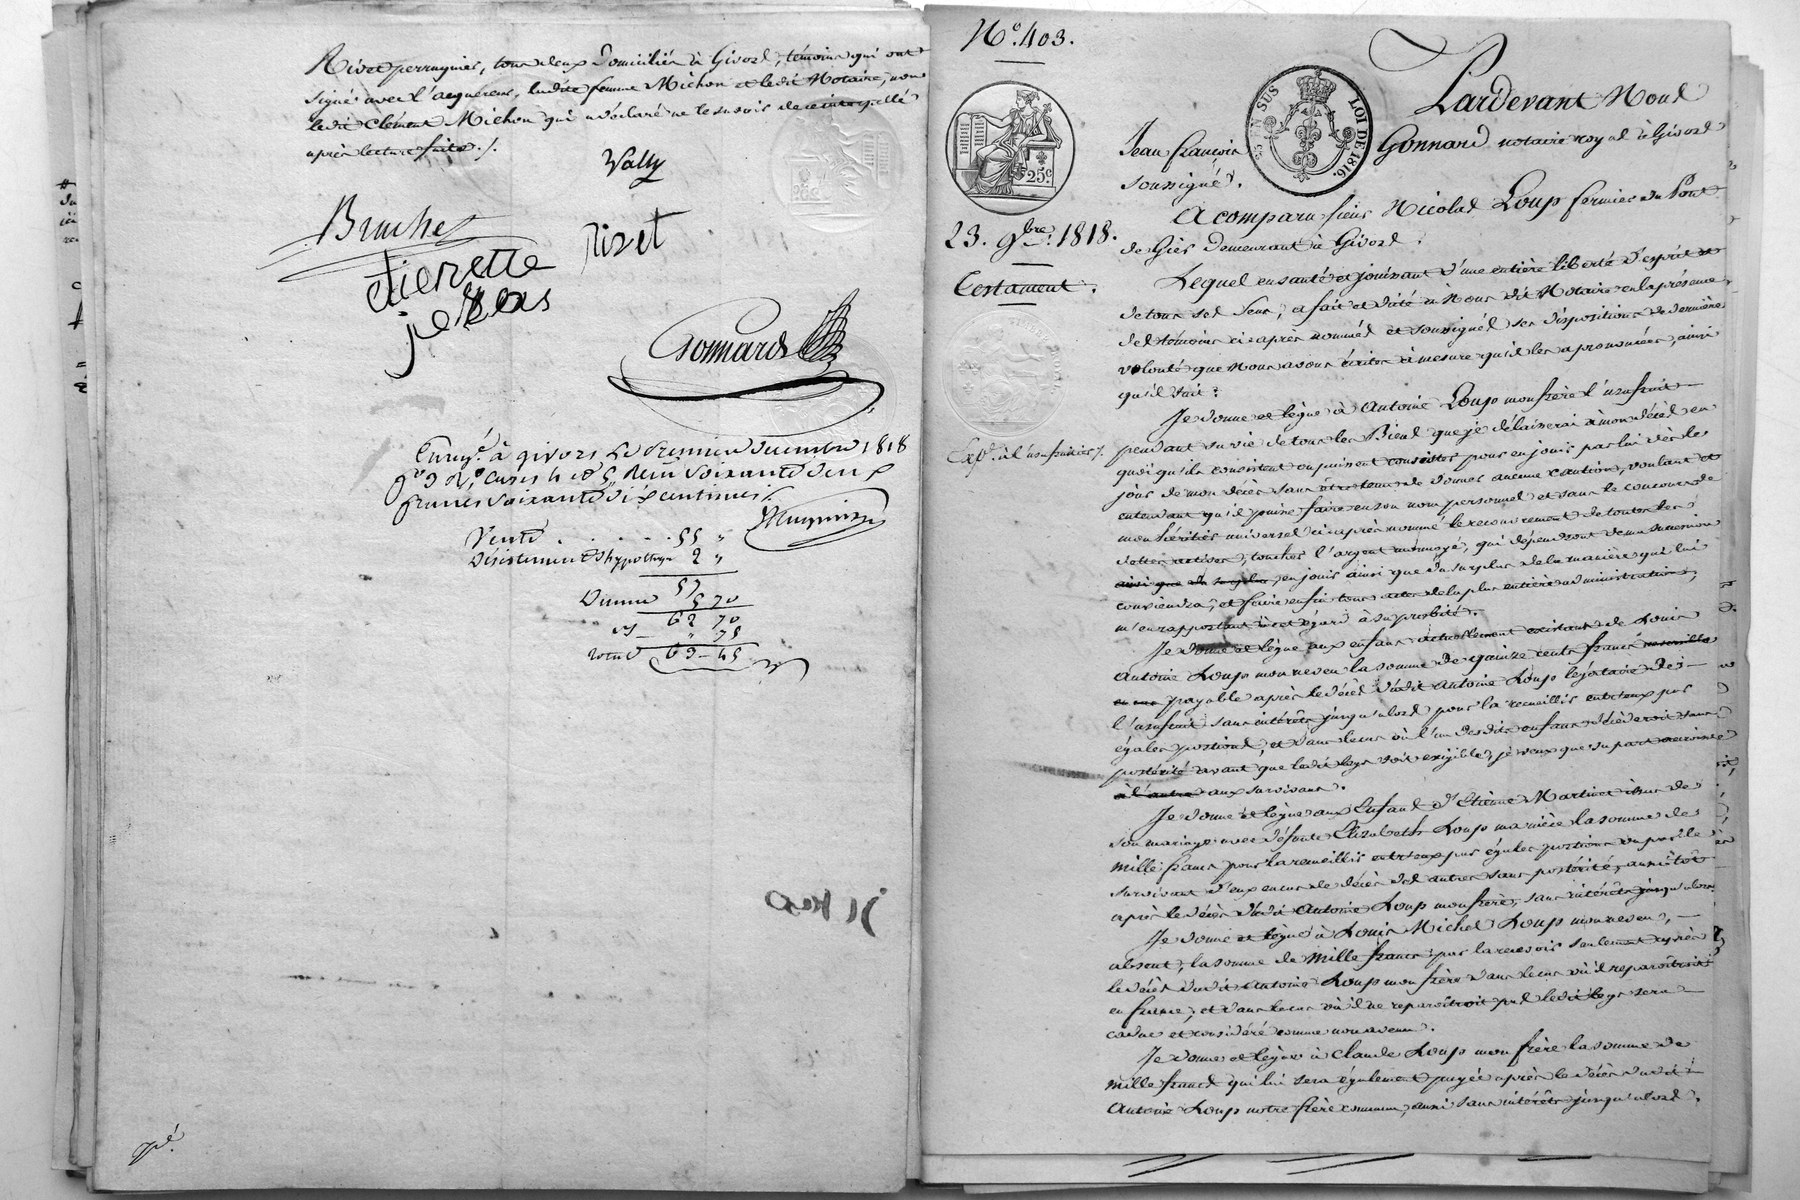 Rivet perruquier, tous deux Domiciliés à Givors, témoins qui ont
signé avec l'acquéreur, ladite femme Michon et ledit Notaire, non
ledit Clément Michon qui a déclaré ne le savoir de ce interpellé
après lecture faite ./.
Vally
Bruchet
rivet
etienette
Gonnard
Enreg.é à givors le premier décembre 1818
francs soixante dix centimes
Vente . . . . . . 55 "
Désistement d'hypothèque 2 "
57
Dixième 5 70
62 70
" 75
total 63-45
gé.
N.o 403.
25.c
EN SUS
LOI DE 1816.
23. 9bre. 1818.
Testament.
Exp.on à l'usufruitier /.
Pardevant Nous
Jean françois Gonnard notaire royal à Givors
soussigné.
A comparu sieur Nicolas Loup fermier du Pont
de Gier demeurant à Givors.
Lequel en santé et jouissant d'une entière liberté d'esprit et
de tous ses sens, a fait et dicté à Nous dit Notaire en la présence
des témoins ci-après nommés et soussignés ses dispositions de dernière
volonté que Nous avons écrites à mesure qu'il les a prononcées, ainsi
qu'il suit :
Je donne et lègue à Antoine Loup mon frère l'usufruit
pendant sa vie de tous les Biens que je délaisserai à mon décès en
quoi qu'ils consistent ou puissent consister pour en jouir par lui dès le
jour de mon décès sans être tenu de donner aucune caution, voulant et
entendant qu'il puisse faire en son nom personnel et sans le concours de
mon héritier universel ci-après nommé le recouvrement de toutes les
dettes actives, toucher l'argent monnoyé, qui dépendront de ma succession
ainsi que du surplus, en jouir ainsi que du surplus de la manière qui lui
conviendra, et faire enfin tous actes de la plus entière administration,
m'en rapportant à cet égard à sa probité.
Je donne et lègue aux enfans actuellement existant de Louis
Antoine Loup mon neveu la somme de quinze cents francs
payable après le décès dudit Antoine Loup légataire de
l'usufruit sans intérêts jusqu'alors pour la recueillir entr'eux par
égales portions, et dans le cas où l'un desdits enfans décéderoit sans
postérité avant que ledit legs soit exigible, je veux que sa part accroisse
à l'autre aux survivans.
Je donne et lègue aux Enfans d'Etienne Martinet issus de
son mariage avec défunte Elizabeth Loup ma nièce la somme de
mille francs pour la recueillir entr'eux par égales portions ou par le
survivant d'eux en cas de décès des autres sans postérité, aussitôt
après le décès dudit Antoine Loup mon frère, sans intérêts jusqu'alors.
Je donne et lègue à Louis Michel Loup mon neveu,
absent, la somme de mille francs pour la recevoir seulement après
le décès dudit Antoine Loup mon frère dans le cas où il reparoîtroit
en france, et dans le cas où il ne reparoîtroit pas ledit legs sera
caduc et considéré comme non avenu.
Je donne et lègue à Claude Loup mon frère la somme de
mille francs qui lui sera également payée après le décès dudit
Antoine Loup notre frère commun, aussi sans intérêts jusqu'alors.